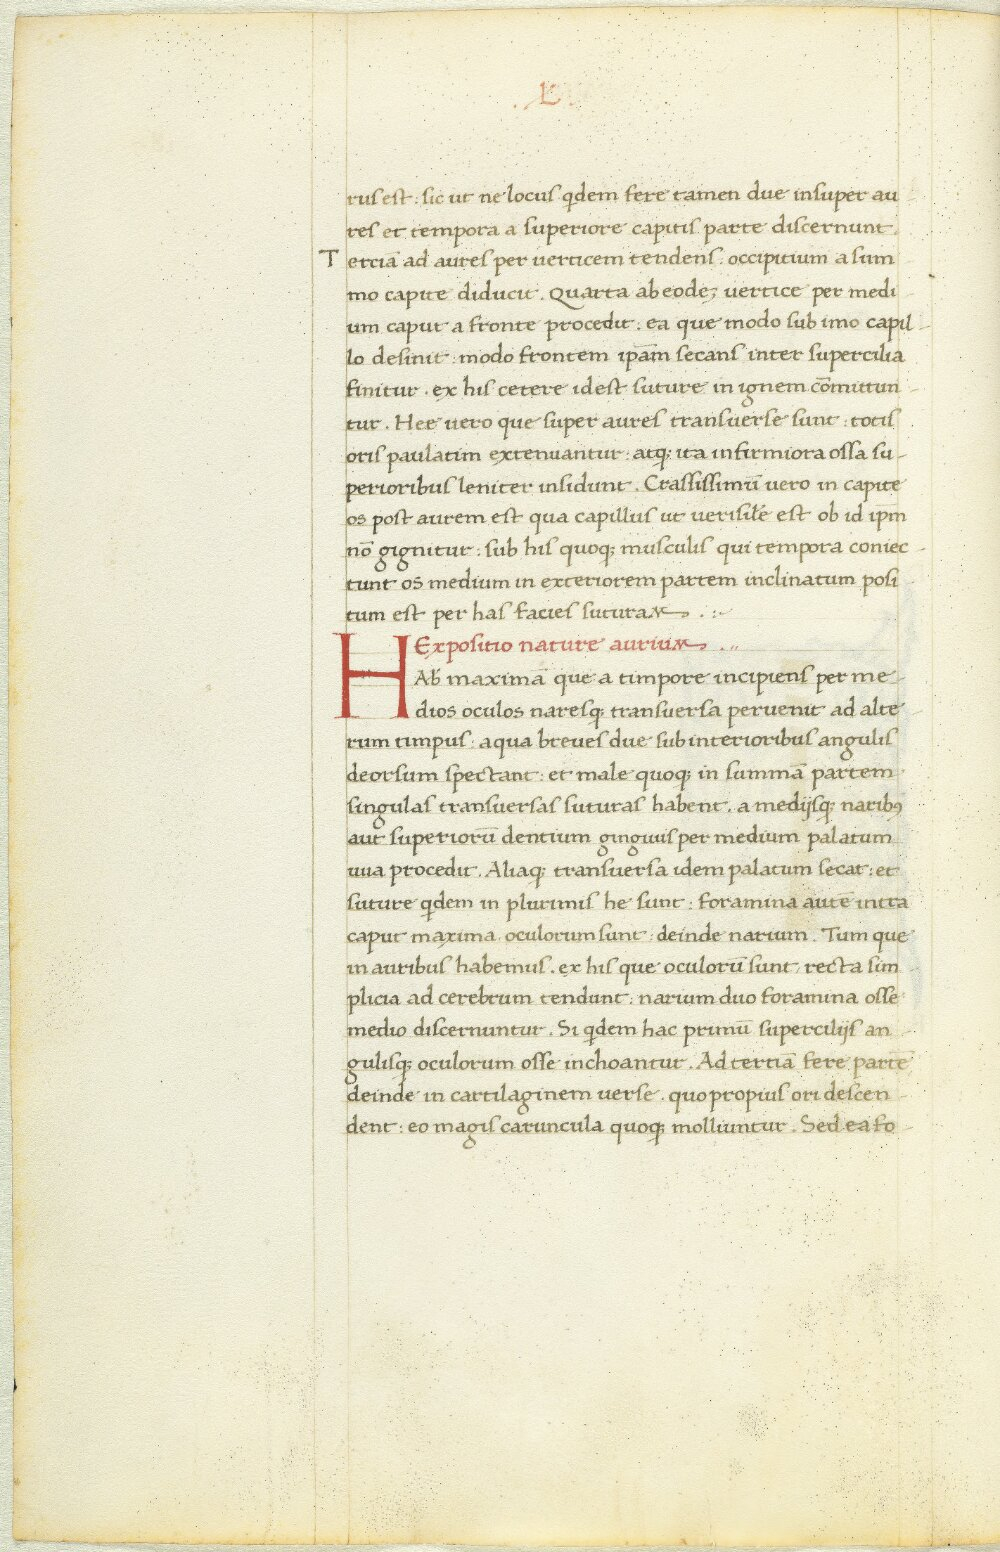 .L.
rus est : sic ut ne locus qdem fere tamen due insuper au
res et tempora a superiore capitis parte discernunt.
Terciā ad aures per uerticem tendens : occipitium a sum
mo capite diducit . Quarta ab eodeꝫ uertice per medi
um caput a fronte procedit : ea que modo sub imo capil
lo desinit : modo frontem ip̄am secans inter supercilia
finitur . ex his cetere id est suture in ignem cōmittun
tur . Hee uero que super aures transuerse sunt : totis
oris paulatim extenuantur : atqꝫ ita infirmiora ossa su
perioribus leniter insidunt . Crassissimū uero in capite
os post aurem est qua capillus ut uerisil̄e est ob id ip̄m
nō gignitur : sub his quoqꝫ musculis qui tempora coniec
tunt os medium in exteriorem partem inclinatum posi
tum est per has facies suturaꝝ . :~
Expositio nature auriuꝝ . ,,
HAb maximā que a timpore incipiens per me
dios oculos naresqꝫ transuersa peruenit ad alte
rum timpus : a qua breues due sub interioribus angulis
deorsum spectant : et male quoqꝫ in summā partem
singulas transuersas suturas habent . a medijsqꝫ naribꝰ
aut superiorū dentium gingiuis per medium palatum
una procedit . Aliaqꝫ transuersa idem palatum secat : et
suture qdem in plurimis he sunt : foramina autē intra
caput maxima oculorum sunt : deinde narium . Tum que
in auribus habemus . ex his que oculorū sunt recta sim
plicia ad cerebrum tendunt : narium duo foramina osse
medio discernuntur . Si qdem hac primū supercilijs an
gulisqꝫ oculorum osse inchoantur . Ad terciā fere partē
deinde in cartilaginem uerse . quo propius ori descen
dent : eo magis caruncula quoqꝫ molliuntur . Sed ea fo